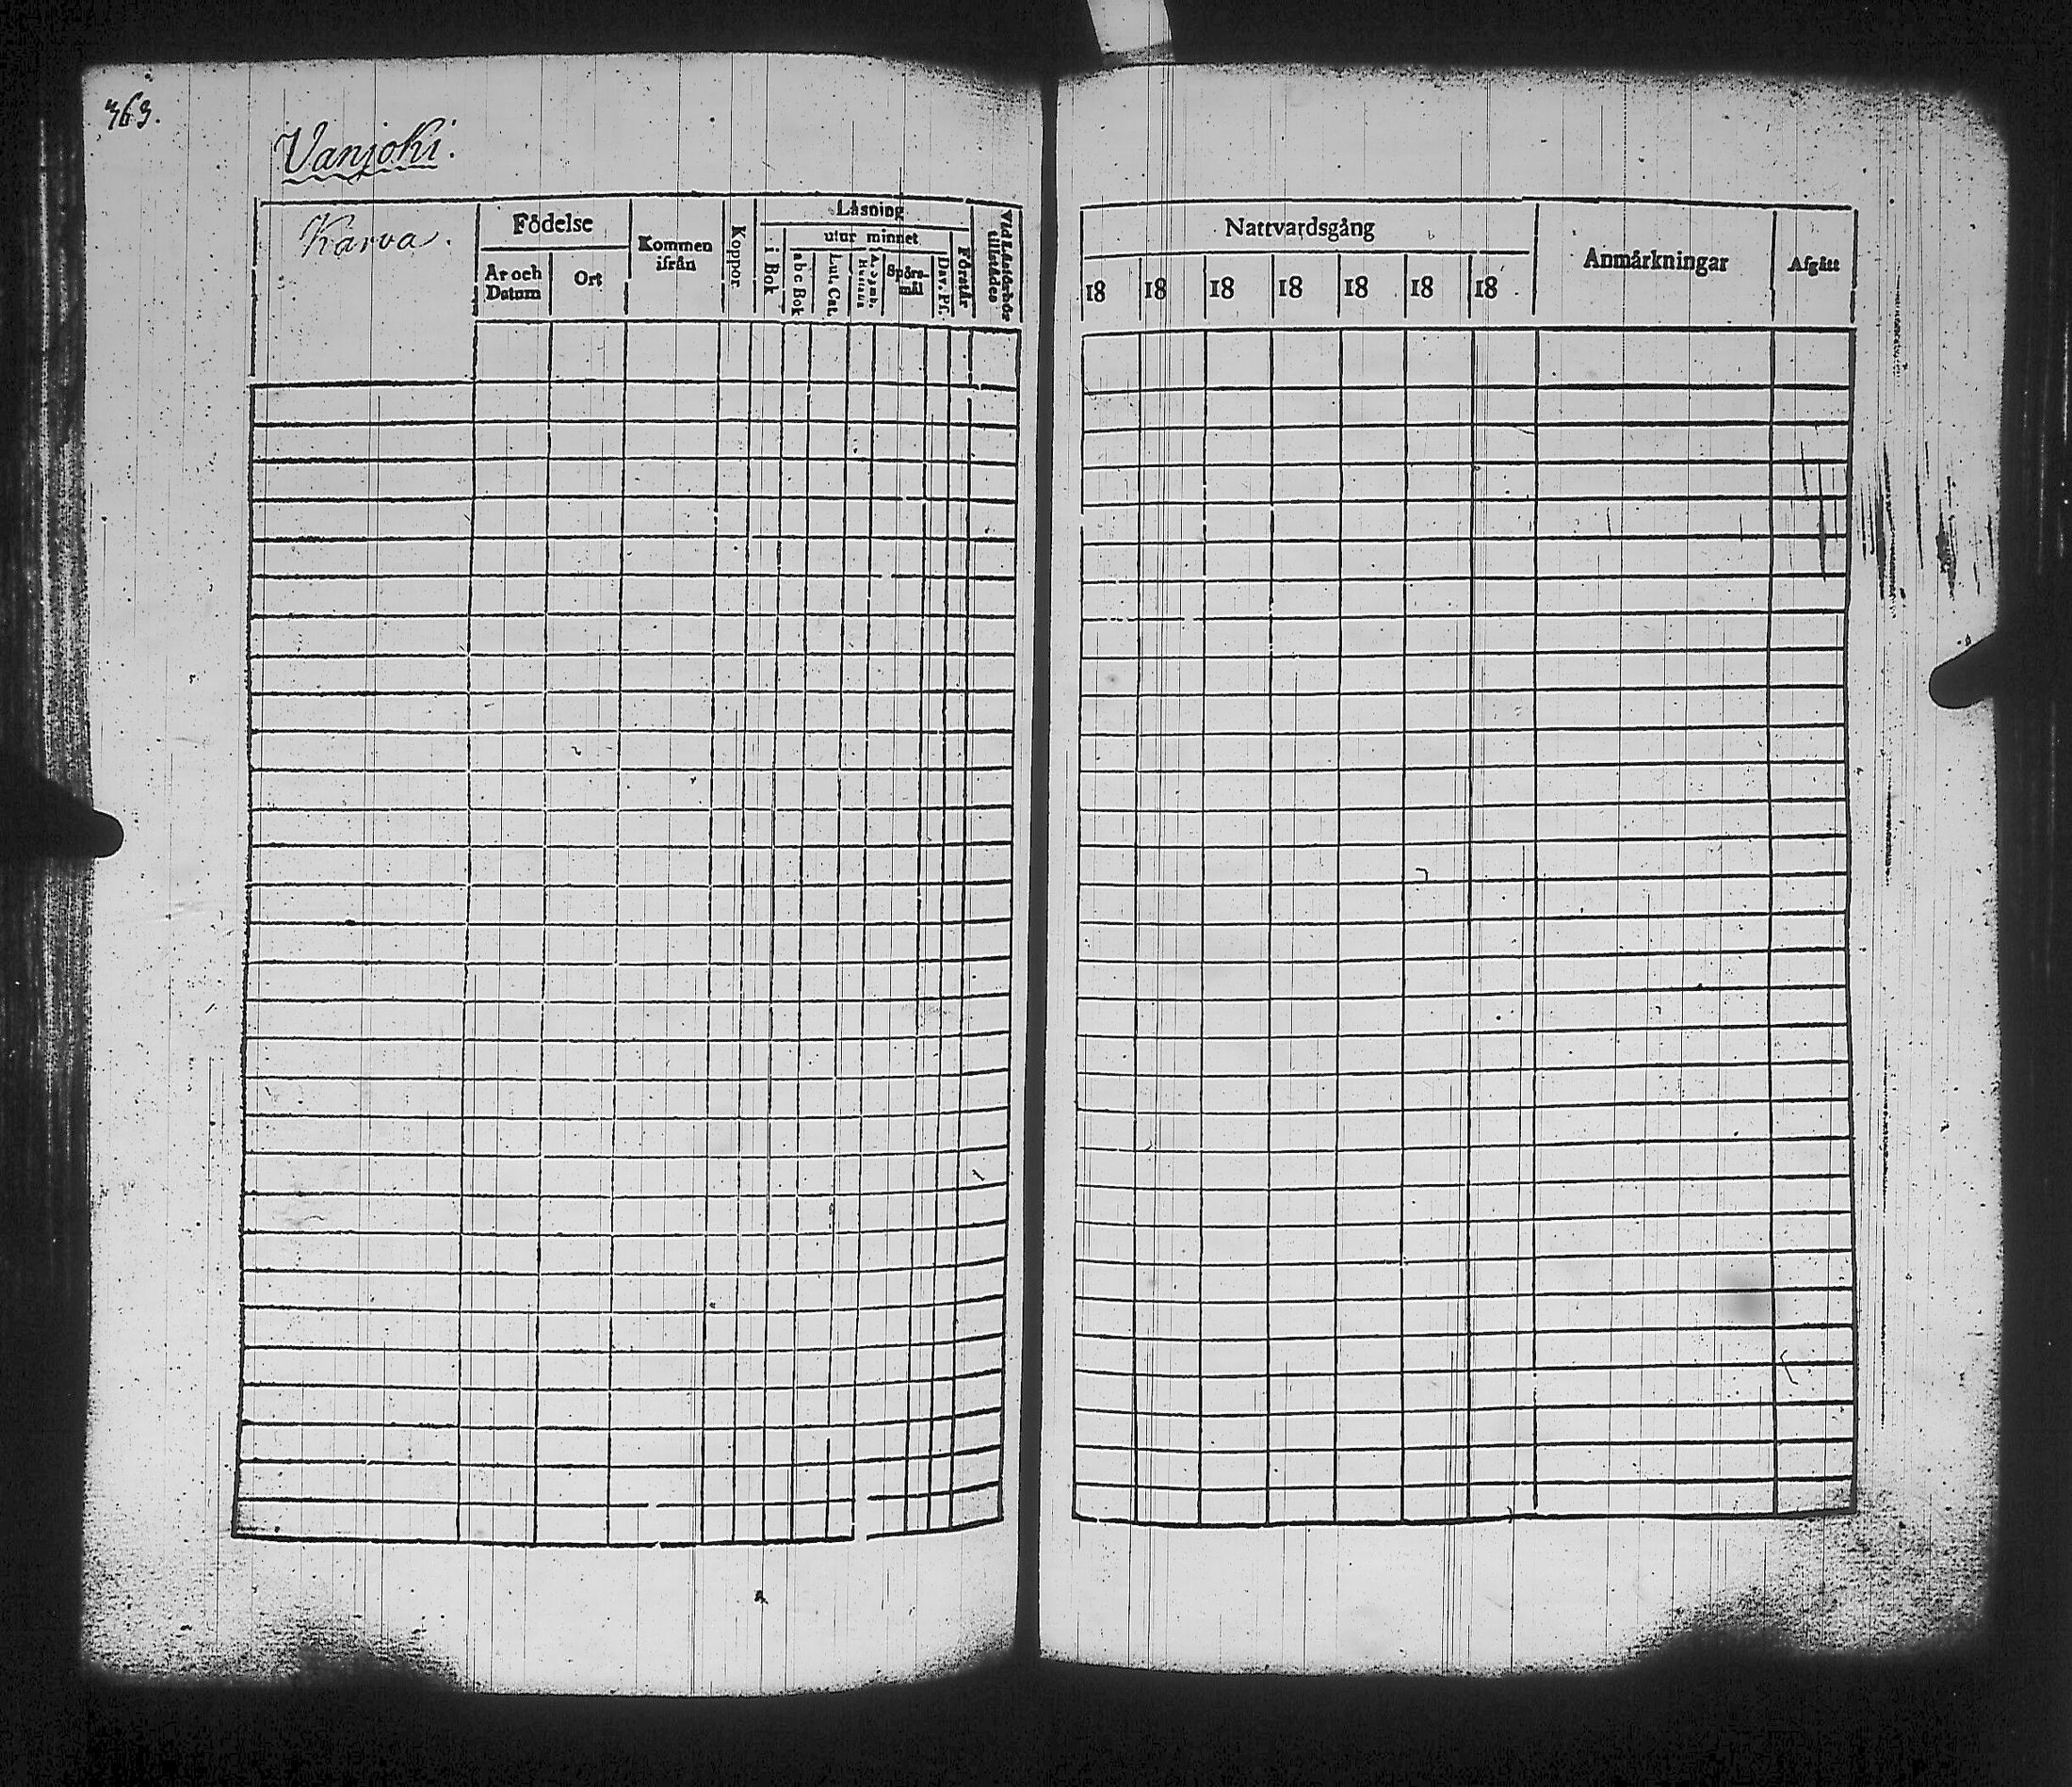 363.
Vanjoki.
Karva.
Födelse
År och Datum
Ort
Kommen ifrån
Koppor
Läsning
utur minnet
i Bok
abc Bok
Lut. Cat.
Spörs-mål
Dav. Ps.
Förstår
Vid Läsförhör tillstädes
Nattvardsgång
18 18 18 18 18 18 18
Anmärkningar
Afgått